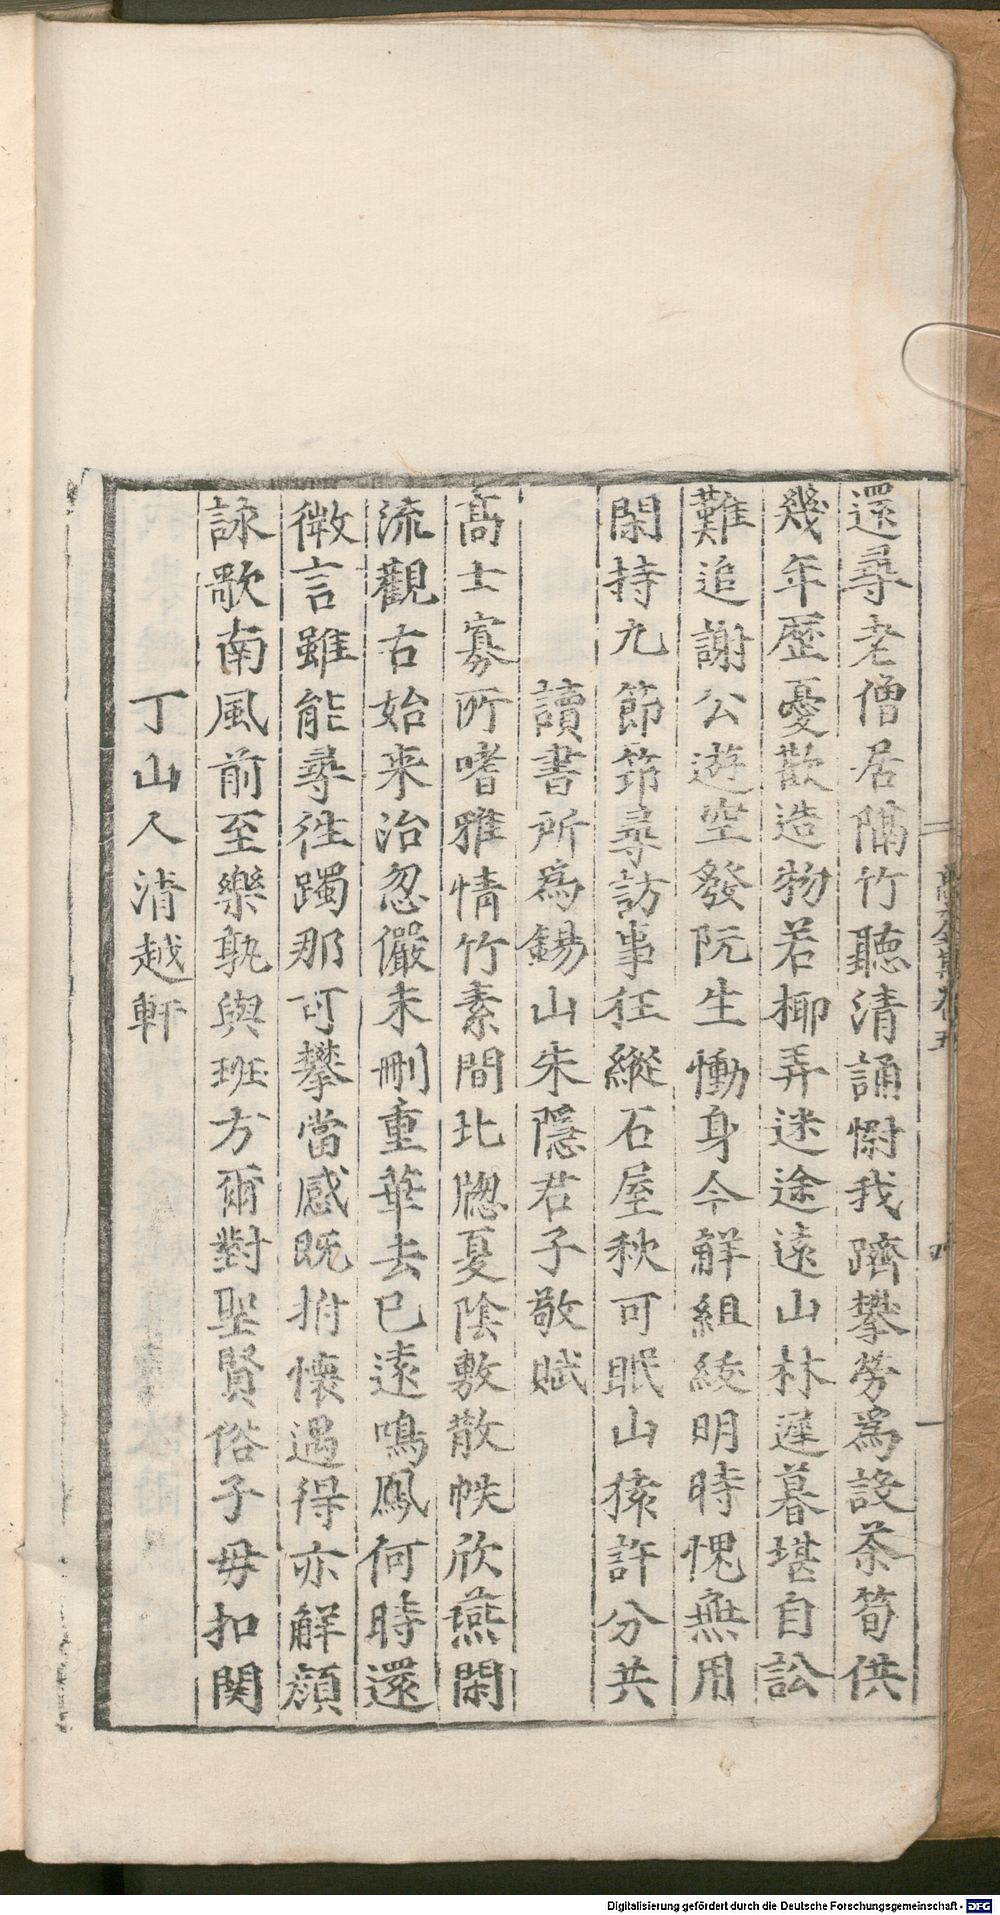 還尋老僧居隔竹聽清誦慰我躋攀勞為設茶筍供
幾年歷憂歡造物若揶弄迷途遠山林遲暮堪自訟
難追謝公遊空發阮生慟身今觧組綾明時愧無用
閑持九節筇尋訪事狂縱石屋秋可眠山猿許分共
讀書所為錫山朱隱君子敬賦
高士寡所嗜雅情竹素間北牕夏陰敷散帙欣燕閑
流觀右始来治忽儼未刪重華去已遠鳴鳳何時還
微言雖能尋徃躅那可攀當感既拊懷遇得亦觧顔
詠歌南風前至樂孰與班方爾對聖賢俗子毋扣関
丁山人清越軒
卷五
四
Digitalisierung gefördert durch die Deutsche Forschungsgemeinschaft - DFG